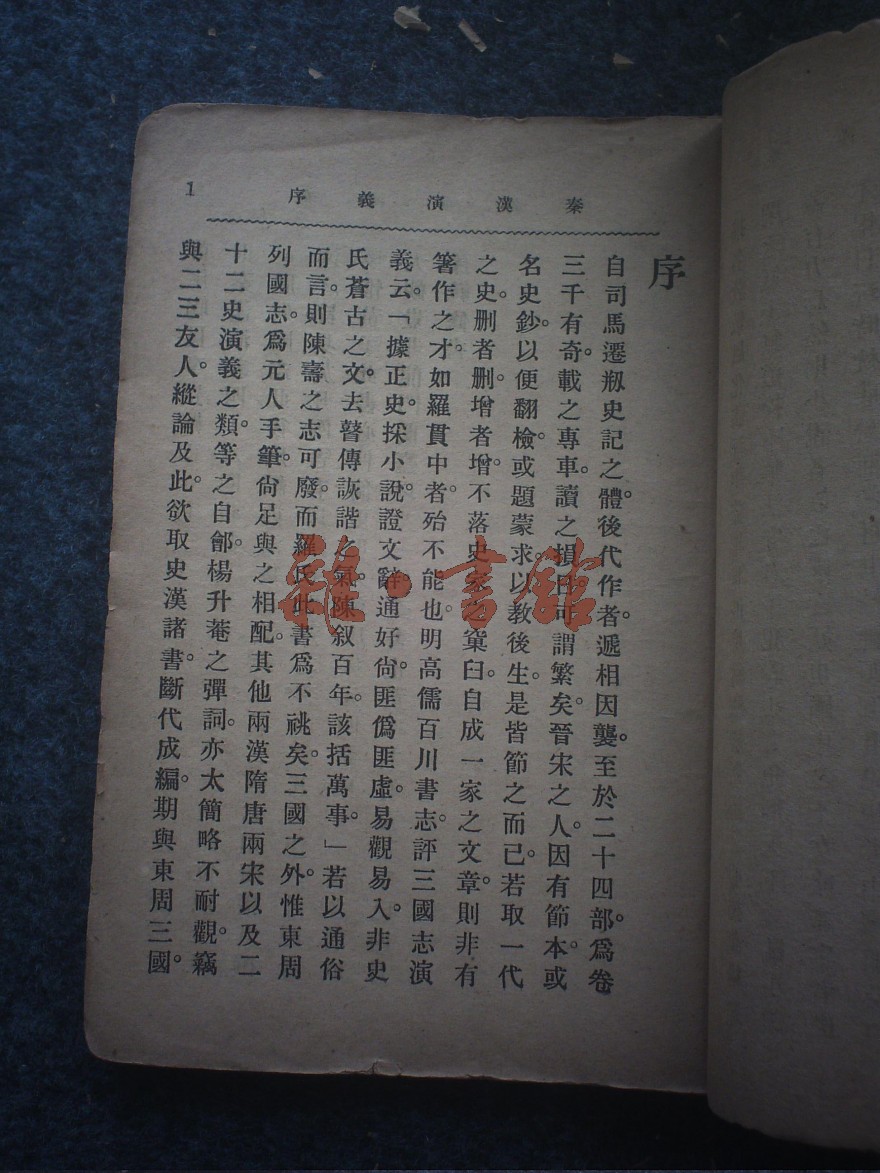 秦漢演義序
1
序
自司馬遷刱史記之體。後代作者。遞相因襲。至於二十四部。爲卷
三千有奇。載之專車。讀之損日。可謂繁矣。晉宋之人。因有節本。或
名史鈔。以便翻檢。或題蒙求。以教後生。是皆節之而已。若取一代
之史。删者删。增者增。不落史家之窠臼。自成一家之文章。則非有
箸作之才。如羅貫中者。殆不能也。明高儒百川書志。評三國志演
義云。「據正史。採小說。證文辭。通好尙。匪僞匪虛。易觀易入。非史
氏蒼古之文。去瞽傳詼諧之氣。陳叙百年。該括萬事。」若以通俗
而言。則陳壽之志可廢。而羅氏此書爲不祧矣。三國之外。惟東周
列國志。爲元人手筆。尙足與之相配。其他兩漢隋唐兩宋以及二
十二史演義之類。等之自鄶。楊升菴之彈詞。亦太簡略不耐觀。竊
與二三友人。縱論及此。欲取史漢諸書。斷代成編。期與東周三國。
雜·書館